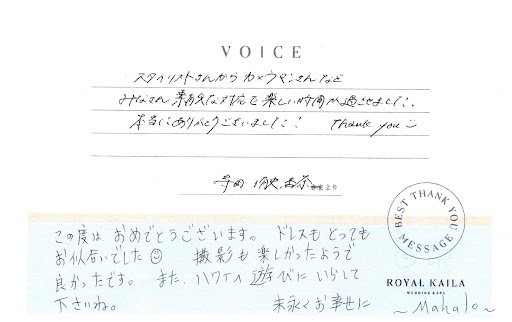 VOICE
スタイリストさんから カメラマンさんなど
みなさん 素敵な対応で 楽しい時間が過せました。
本当にありがとうございました! Thank you
寺田 より
BEST THANK YOU MESSAGE
この度は おめでとうございます。 ドレスも とっても
お似合いでした 撮影も 楽しかったようで
良かったです。 また、ハワイへ 遊びに いらして
下さいね。 末永くお幸せに
ROYAL KAILA
WEDDING & SPA
~Mahalo~